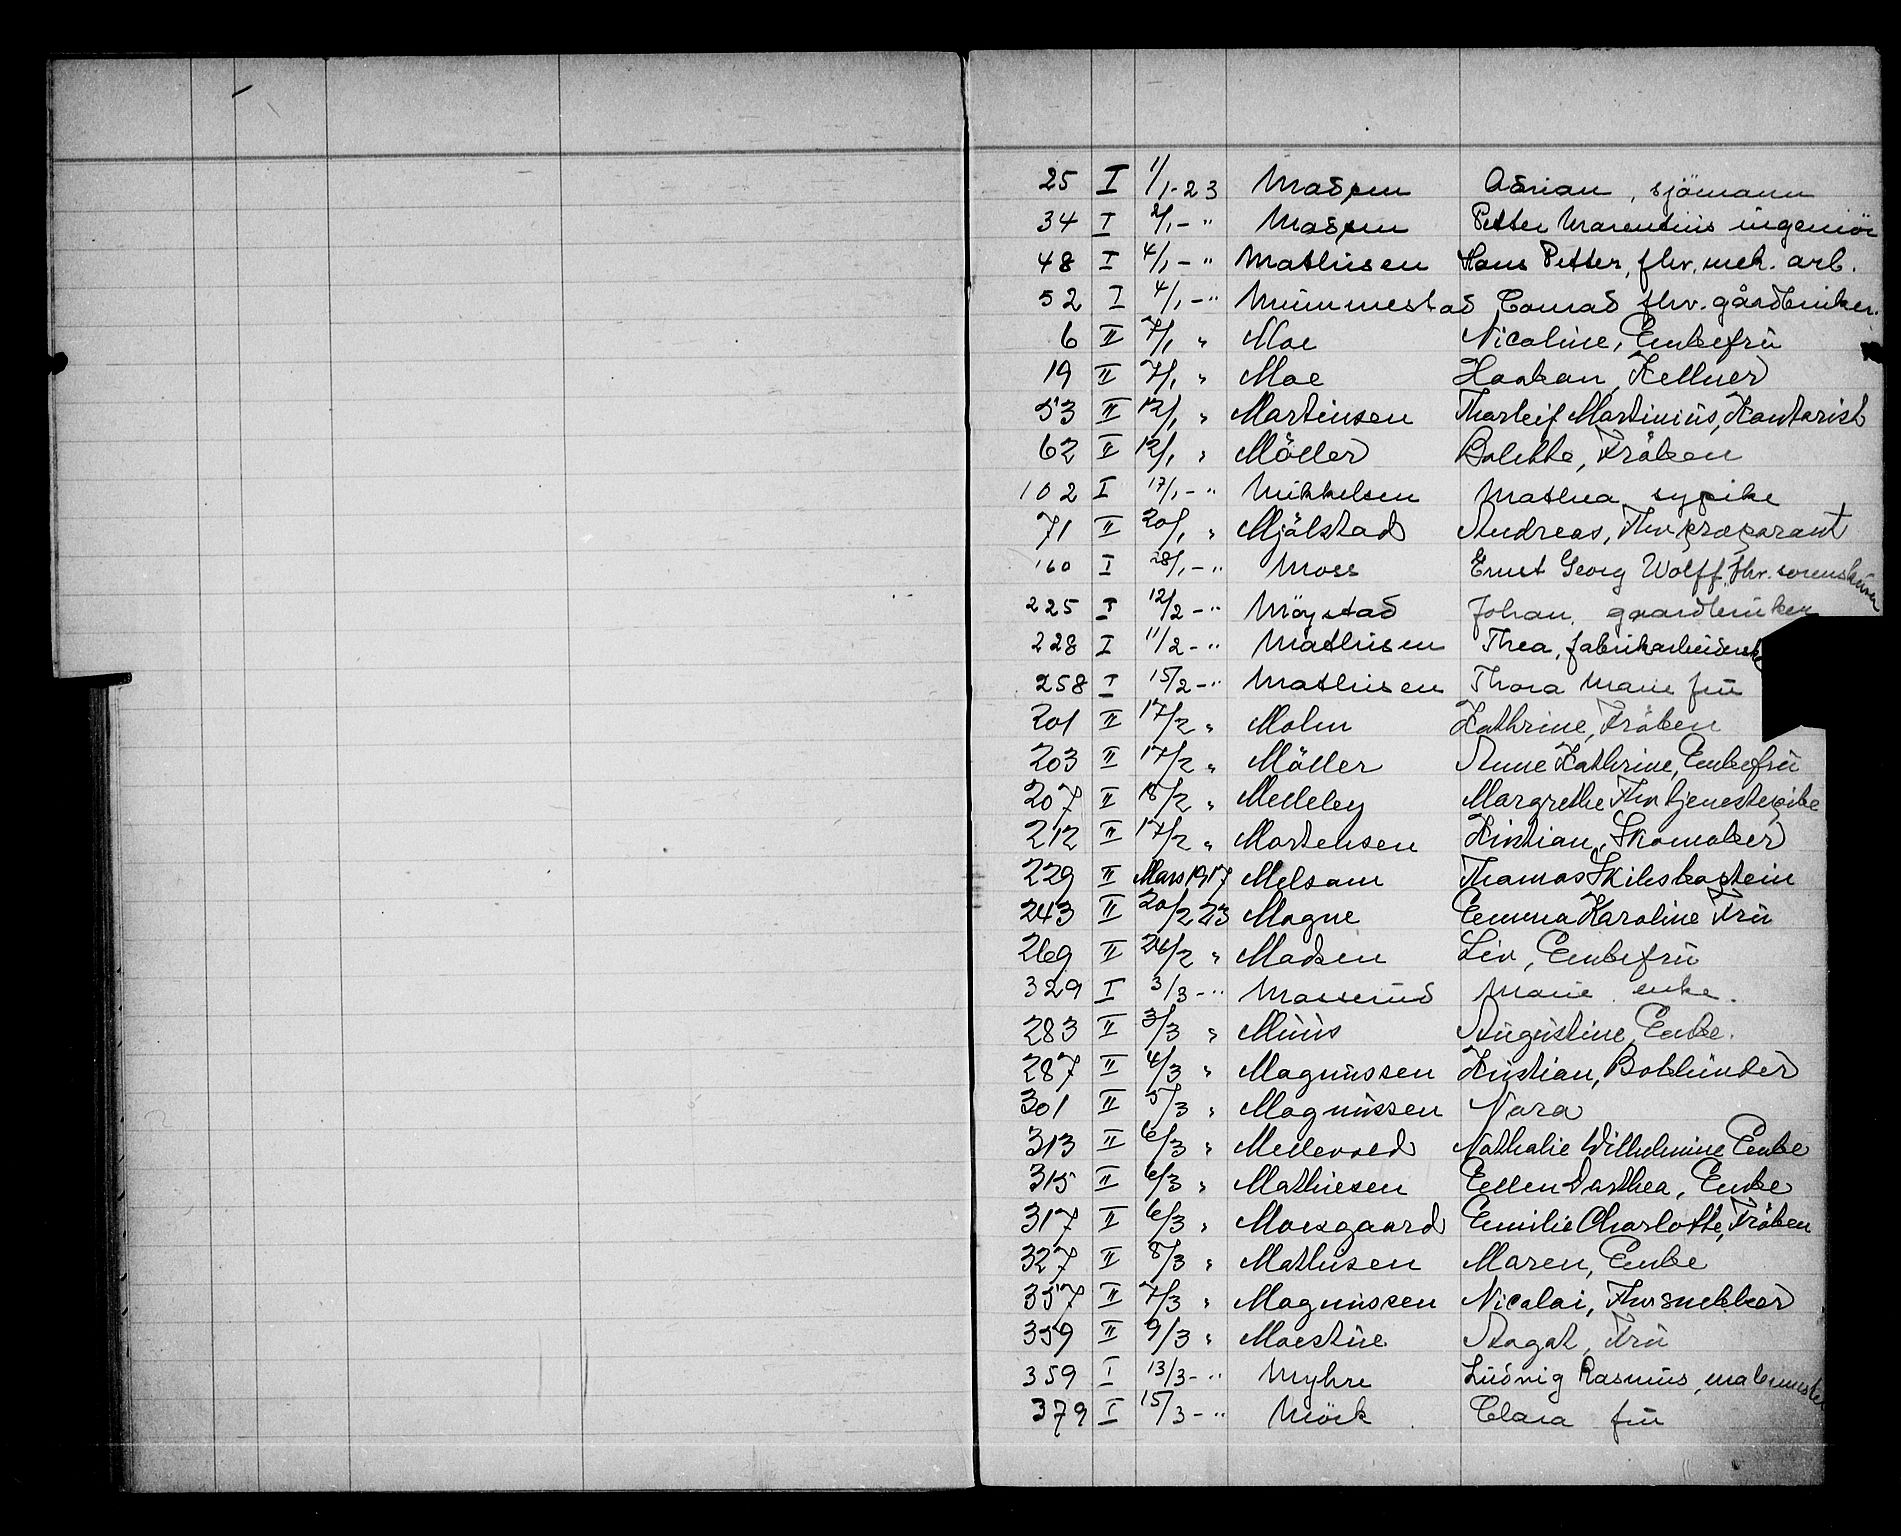 25 I 1/1-23 Madsen Adrian, sjömann
34 I 2/1-" Madsen Petter Marentius ingeniör
48 I 4/1-" Mathisen Hans Petter, fhv. mek. arb.
52 I 4/1-" Mummestad Conrad fhv. gårdbruker.
6 II 7/1 " Moe Nicoline, Enkefru
19 II 7/1 " Moe Haakon, Kellner
53 II 12/1 " Martinsen Thorleif Martinius, Kontorist
62 II 12/1 " Möller Bolette, Fröken
102 I 17/1-" Mikkelsen Mathea sypike
71 II 20/1 " Mjölstad Andreas, Fhv. præparant
160 I 28/1-" Moss Ernst Georg Wolff, fhv. sorenskriver
225 I 12/2-" Möystad Johan, gaardbruker
228 I 11/2-" Mathisen Thea, fabrikarbeiderske
258 I 15/2-" Mathisen Thora Marie fru
201 II 17/2 " Molin Kathrine, Fröken
203 II 17/2 " Möller Anne Kathrine, Enkefru
207 II 18/2 " Melleby Margrethe Fhv tjenestepike
212 II 17/2 " Mortensen Kristian, Skomaker
229 II Mars 1917 Melsom Thomas Skibskaptein
243 II 20/2 23 Magne Emma Karoline Fru
269 II 26/2 " Madsen Liv, Enkefru
329 I 3/3-" Masserud Marie enke.
283 II 3/3 " Muus Augustine, Enke.
287 II 4/3 " Magnussen Kristian, Bokbinder
301 II 5/3 " Magnussen Nora
313 II 6/3 " Mellerved Nathalie Wilhelmine Enke
315 II 6/3 " Mathiesen Ellen Dorthea, Enke
317 II 6/3 " Moesgaard Emilie Charlotte, Fröken
327 II 8/3 " Mathisen Maren, Enke
357 II 7/3 " Magnussen Nicolai, Fhv snekker
359 II 9/3 " Moestue Aagot, Fru
359 I 13/3-" Myhre Ludvig Rasmus, malermester
379 I 15/3-" Mörk Clara fru